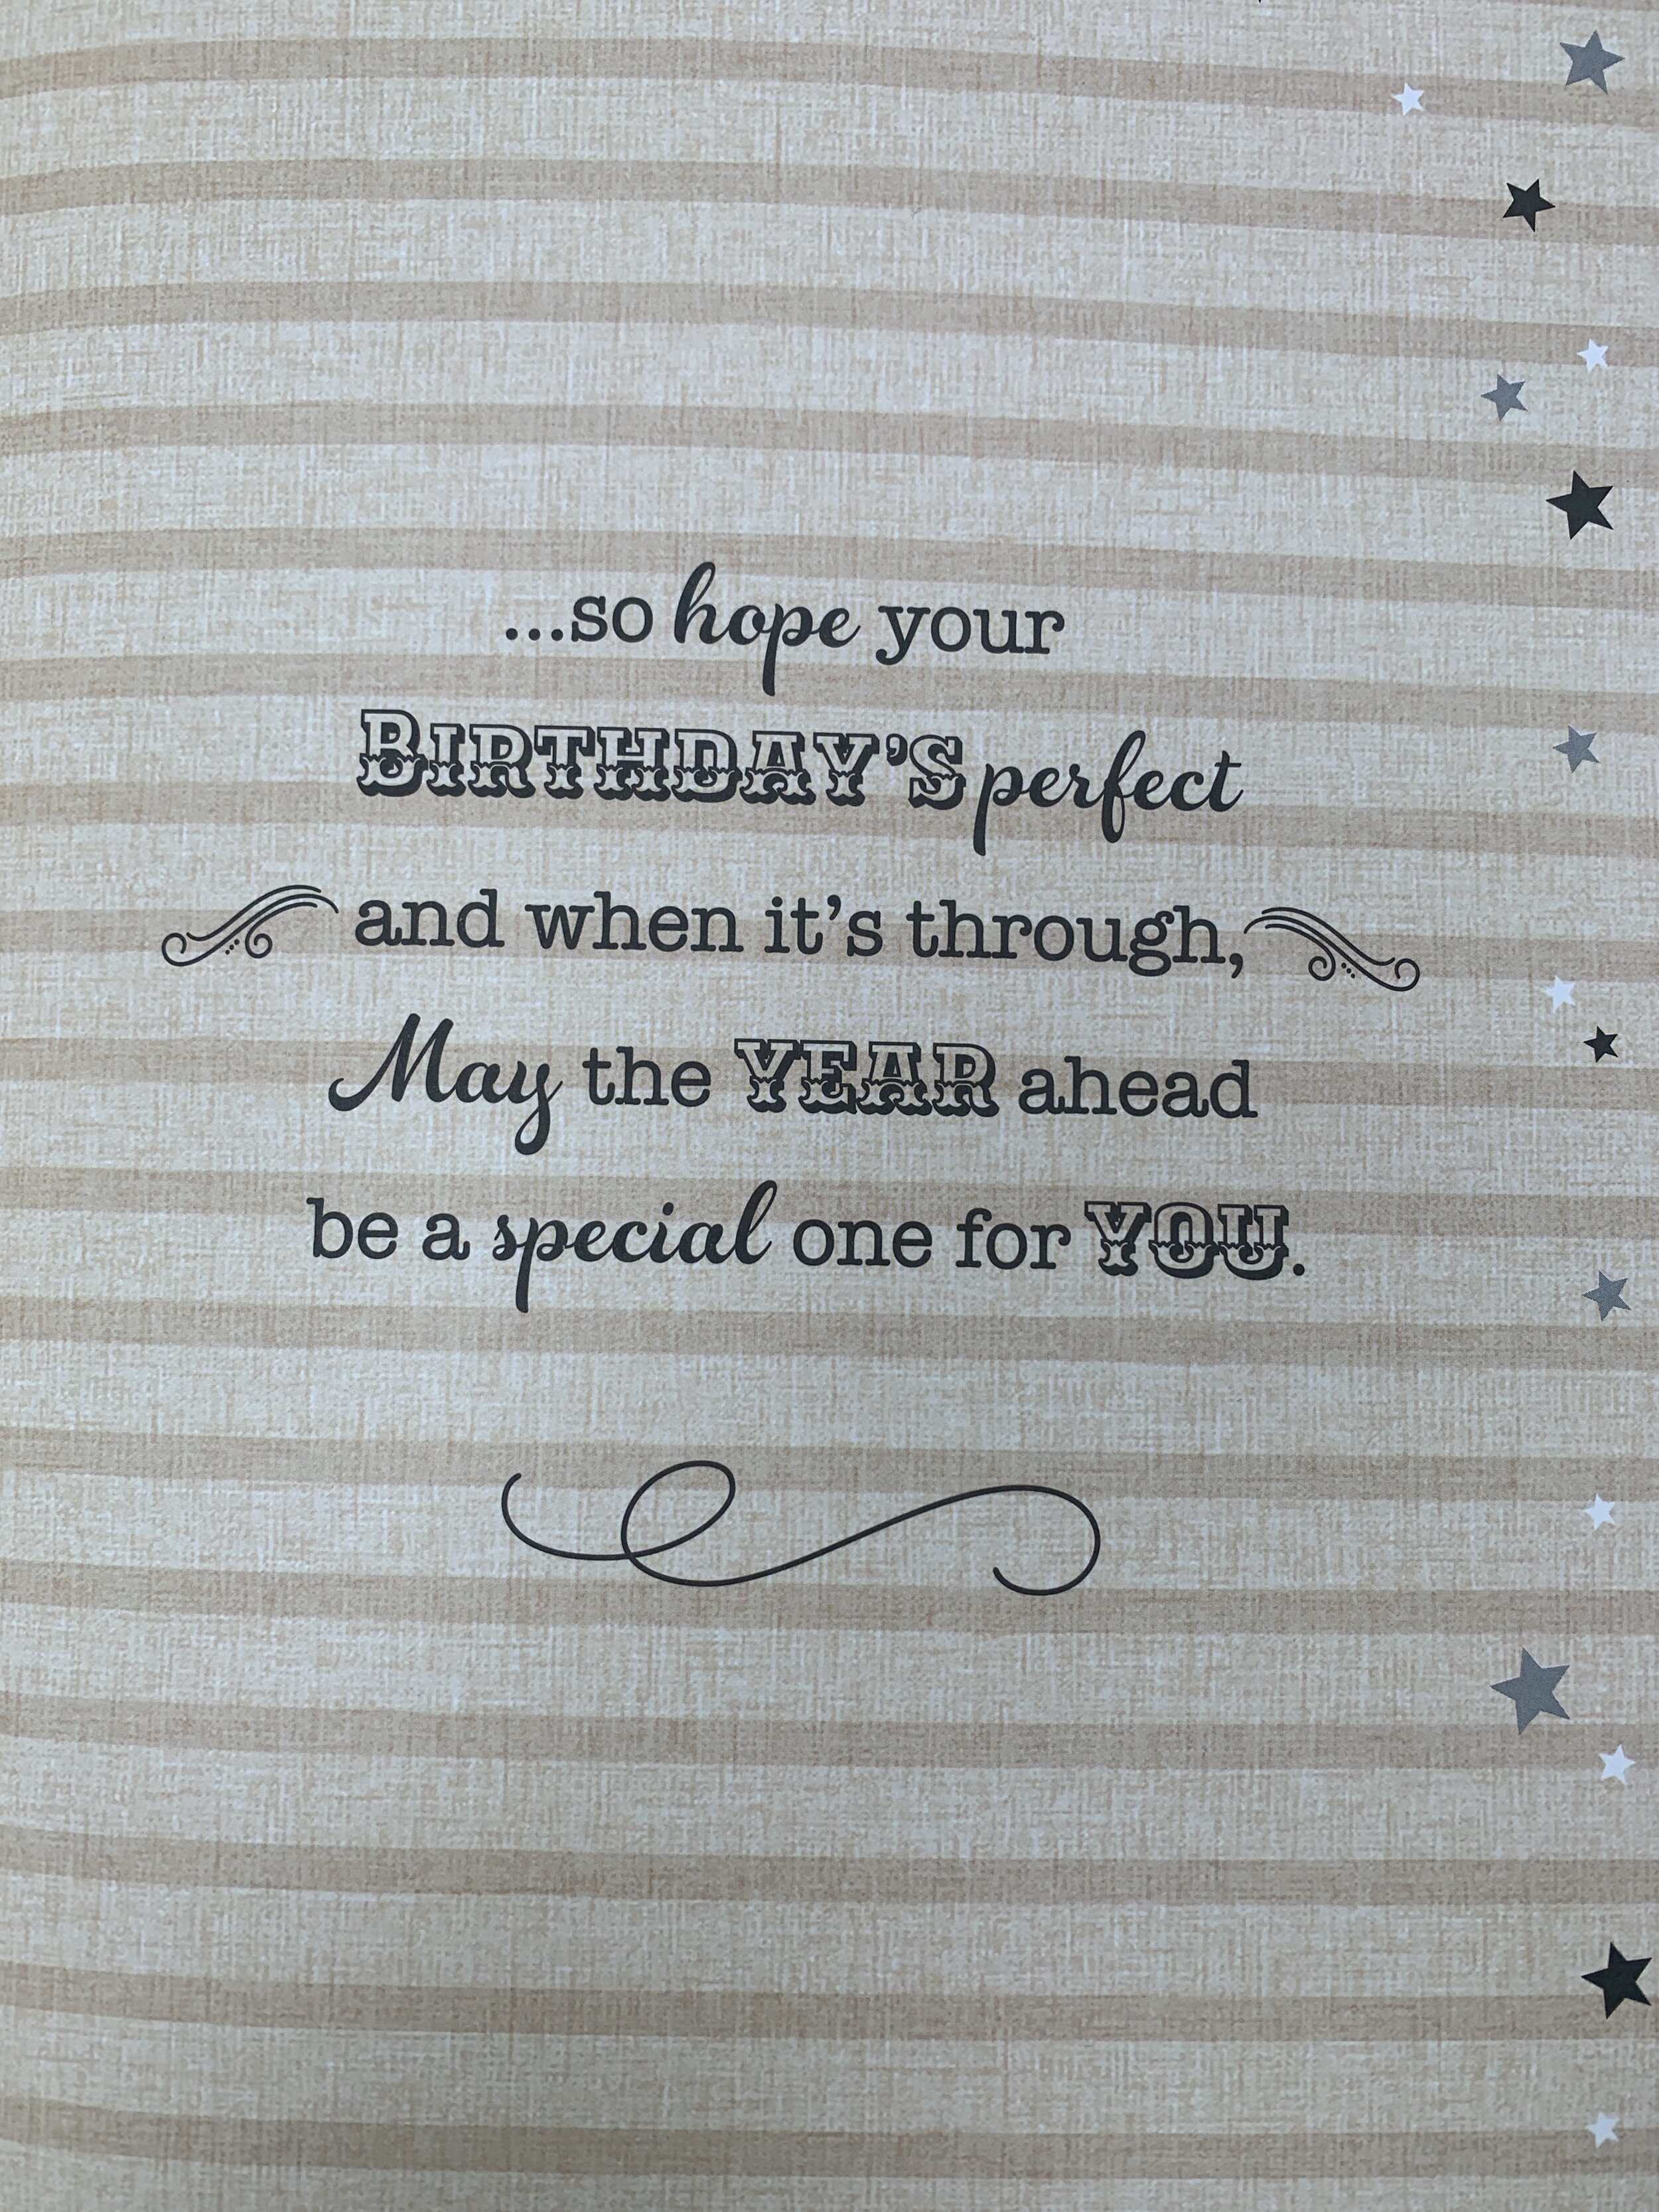 ...so hope your
BIRTHDAY'S perfect
and when it's through,
May the YEAR ahead
be a special one for YOU.